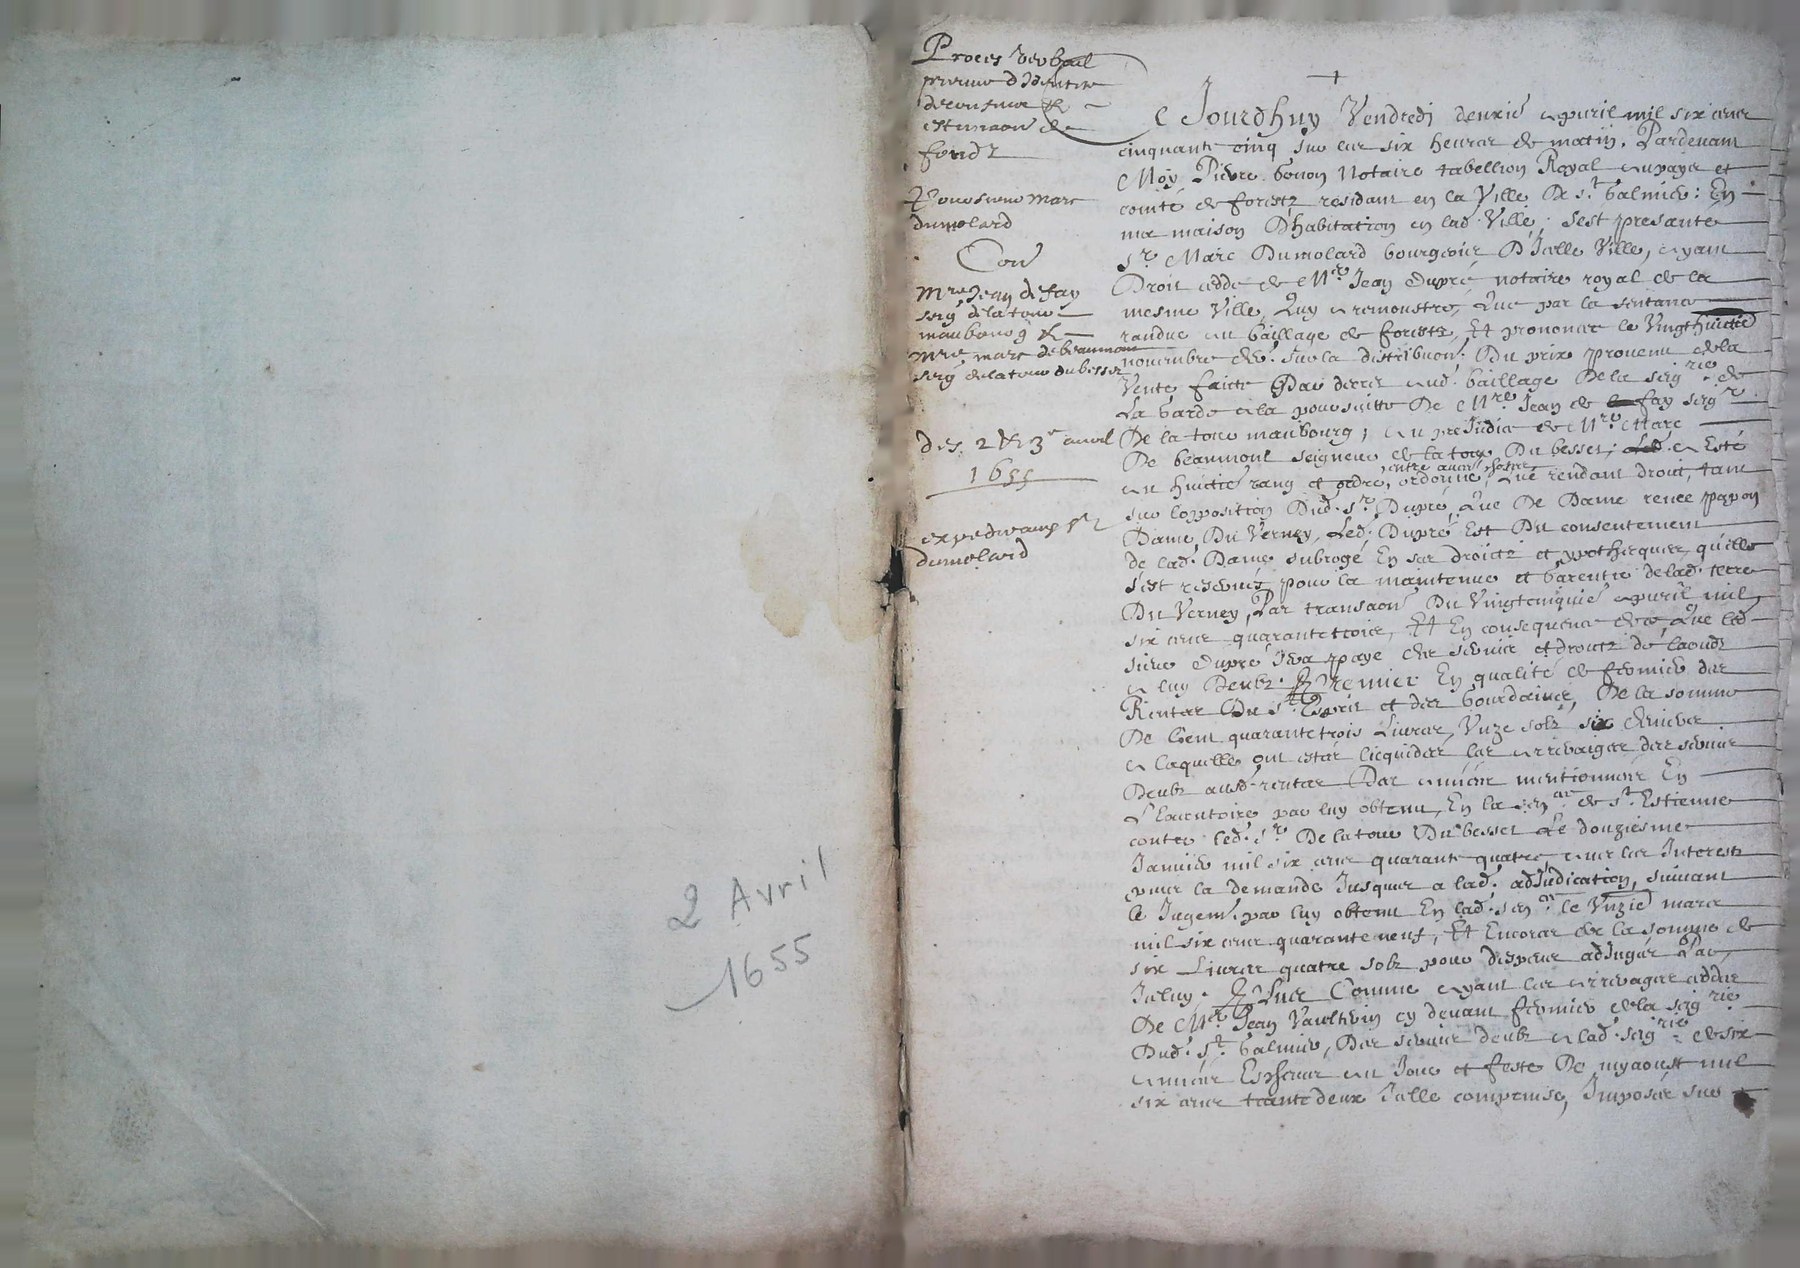 2 Avril
1655
Proces verbal
prennue d'Identite
de consinne &
estimaon de
fondz
Pour sieur Marc
dumolard
Con
Mre Jean de fay
seigr de la tour
maubourg &
Mre marc de beaumont
seigr de la tour du besset
des 2 & 3e auril
1655
expedie aud sr
dumolard
Ce Jourdhuy Vendredj deuxie apuril mil six cens
cinquante cinq sur les six heures de matin, Pardeuant
Moy Pierre bonon Notaire tabellion Royal au pays et
comté de forestz residant en la Ville De st Galmier: En
ma maison D'habitation en lad. Ville, s'est presanté
sr. Marc Dumolard bourgeois D'Icelle Ville, ayant
Droit cedde de Mre Jean Dupré notaire royal de la
mesme Ville, Quy a remonstre, Que par la sentance
randue au baillage de forestz, Et prononcee le Vingthuictie
nouembre der. sur la distribuon. Du prix prouenu de la
Vente faicte Par decret aud. baillage De la seigrie de
La Garde a la poursuitte De Mre Jean de fay seigr
De la tour maubourg, au preJudice de Mre Marc
De beaumont seigneur de la tour Du besset, a Esté
au huictie rang et ordre, ordonné, Que rendant droit, tant
entre autre chose
sur lopposition Dud. sr. Dupré, Que De Dame renee papon
Dame Du Verney, Led. Dupré Est Du consentement
de lad. Dame subrogé En ses droictz et ypothecques, qu'elle
s'est reseruez pour la maintenue et Garentie de lad. terre
Du Verney, Par transaon Du Vingtcinquie apuril mil
six cens quarante troix, Et En consequence de ce Que led
sieur Dupré sera payé des seruis et droictz de laoudz
a luy deubz. Premier En qualité de fermier des
Rentes Du st. Esprit et des bourdaines, De la somme
De Cent quarante trois Liures, Vnze solz six deniers
a laquelle ont estés licquidez les arreraiges des seruis
Deubz ausd. rentes Des années mentionnées En
L'Executoire par luy obtenu, En la senne de st. Estienne
contre led. sr De la tour Du besset Le douziesme
Januier mil six cens quarante quatre, auec les Interestz
puis la demande Jusques a lad. adJudication, suiuant
le Jugemt. par luy obtenu En lad. senn le Vnzie mars
mil six cens quarante neuf, Et Encores de la somme de
six Liures quatre solz pour despens adJugés Par
Iceluy. Plus Comme ayant les arrerages ceddes
De Mre Jean Vaultvin cy deuant fermier de la seigrie
Dud. st. Galmier, Des seruis deubz a lad. seigrie de six
années Escheues au Jour et feste De myaoust mil
six cens trante deux Icelle comprinse, Imposés sur